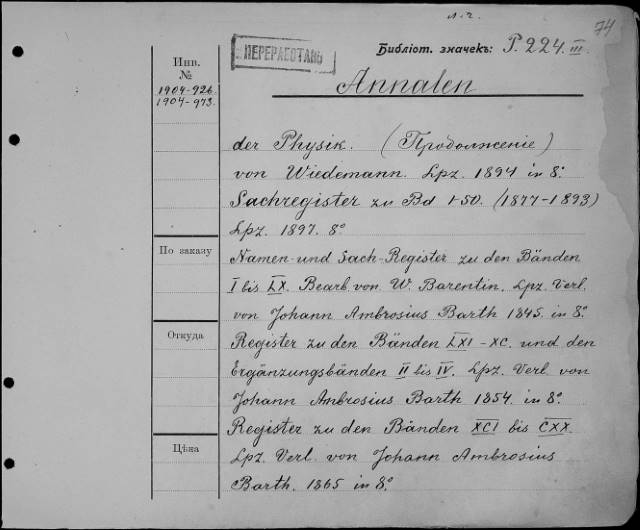 л. 2.
74
ПЕРЕРАБОТАНЪ
Библіот. значекъ: P. 224 III.
Инв.
№
1904-926.
1904-973.
Annalen
der Physik. (Продолженіе)
von Wiedemann. Lpz. 1894 in 8º.
Sachregister zu Bd 1-50. (1877-1893)
Lpz. 1897. 8º
По заказу
Namen- und Sach-Register zu den Bänden
I bis LX. Bearb. von W. Barentin. Lpz. Verl.
von Johann Ambrosius Barth 1845. in 8º
Откуда
Register zu den Bänden LXI - XC. und den
Ergänzungsbänden II bis IV. Lpz. Verl von
Johann Ambrosius Barth 1854. in 8º
Register zu den Bänden XCI bis CXX.
Цѣна
Lpz. Verl. von Johann Ambrosius
Barth. 1865 in 8º.